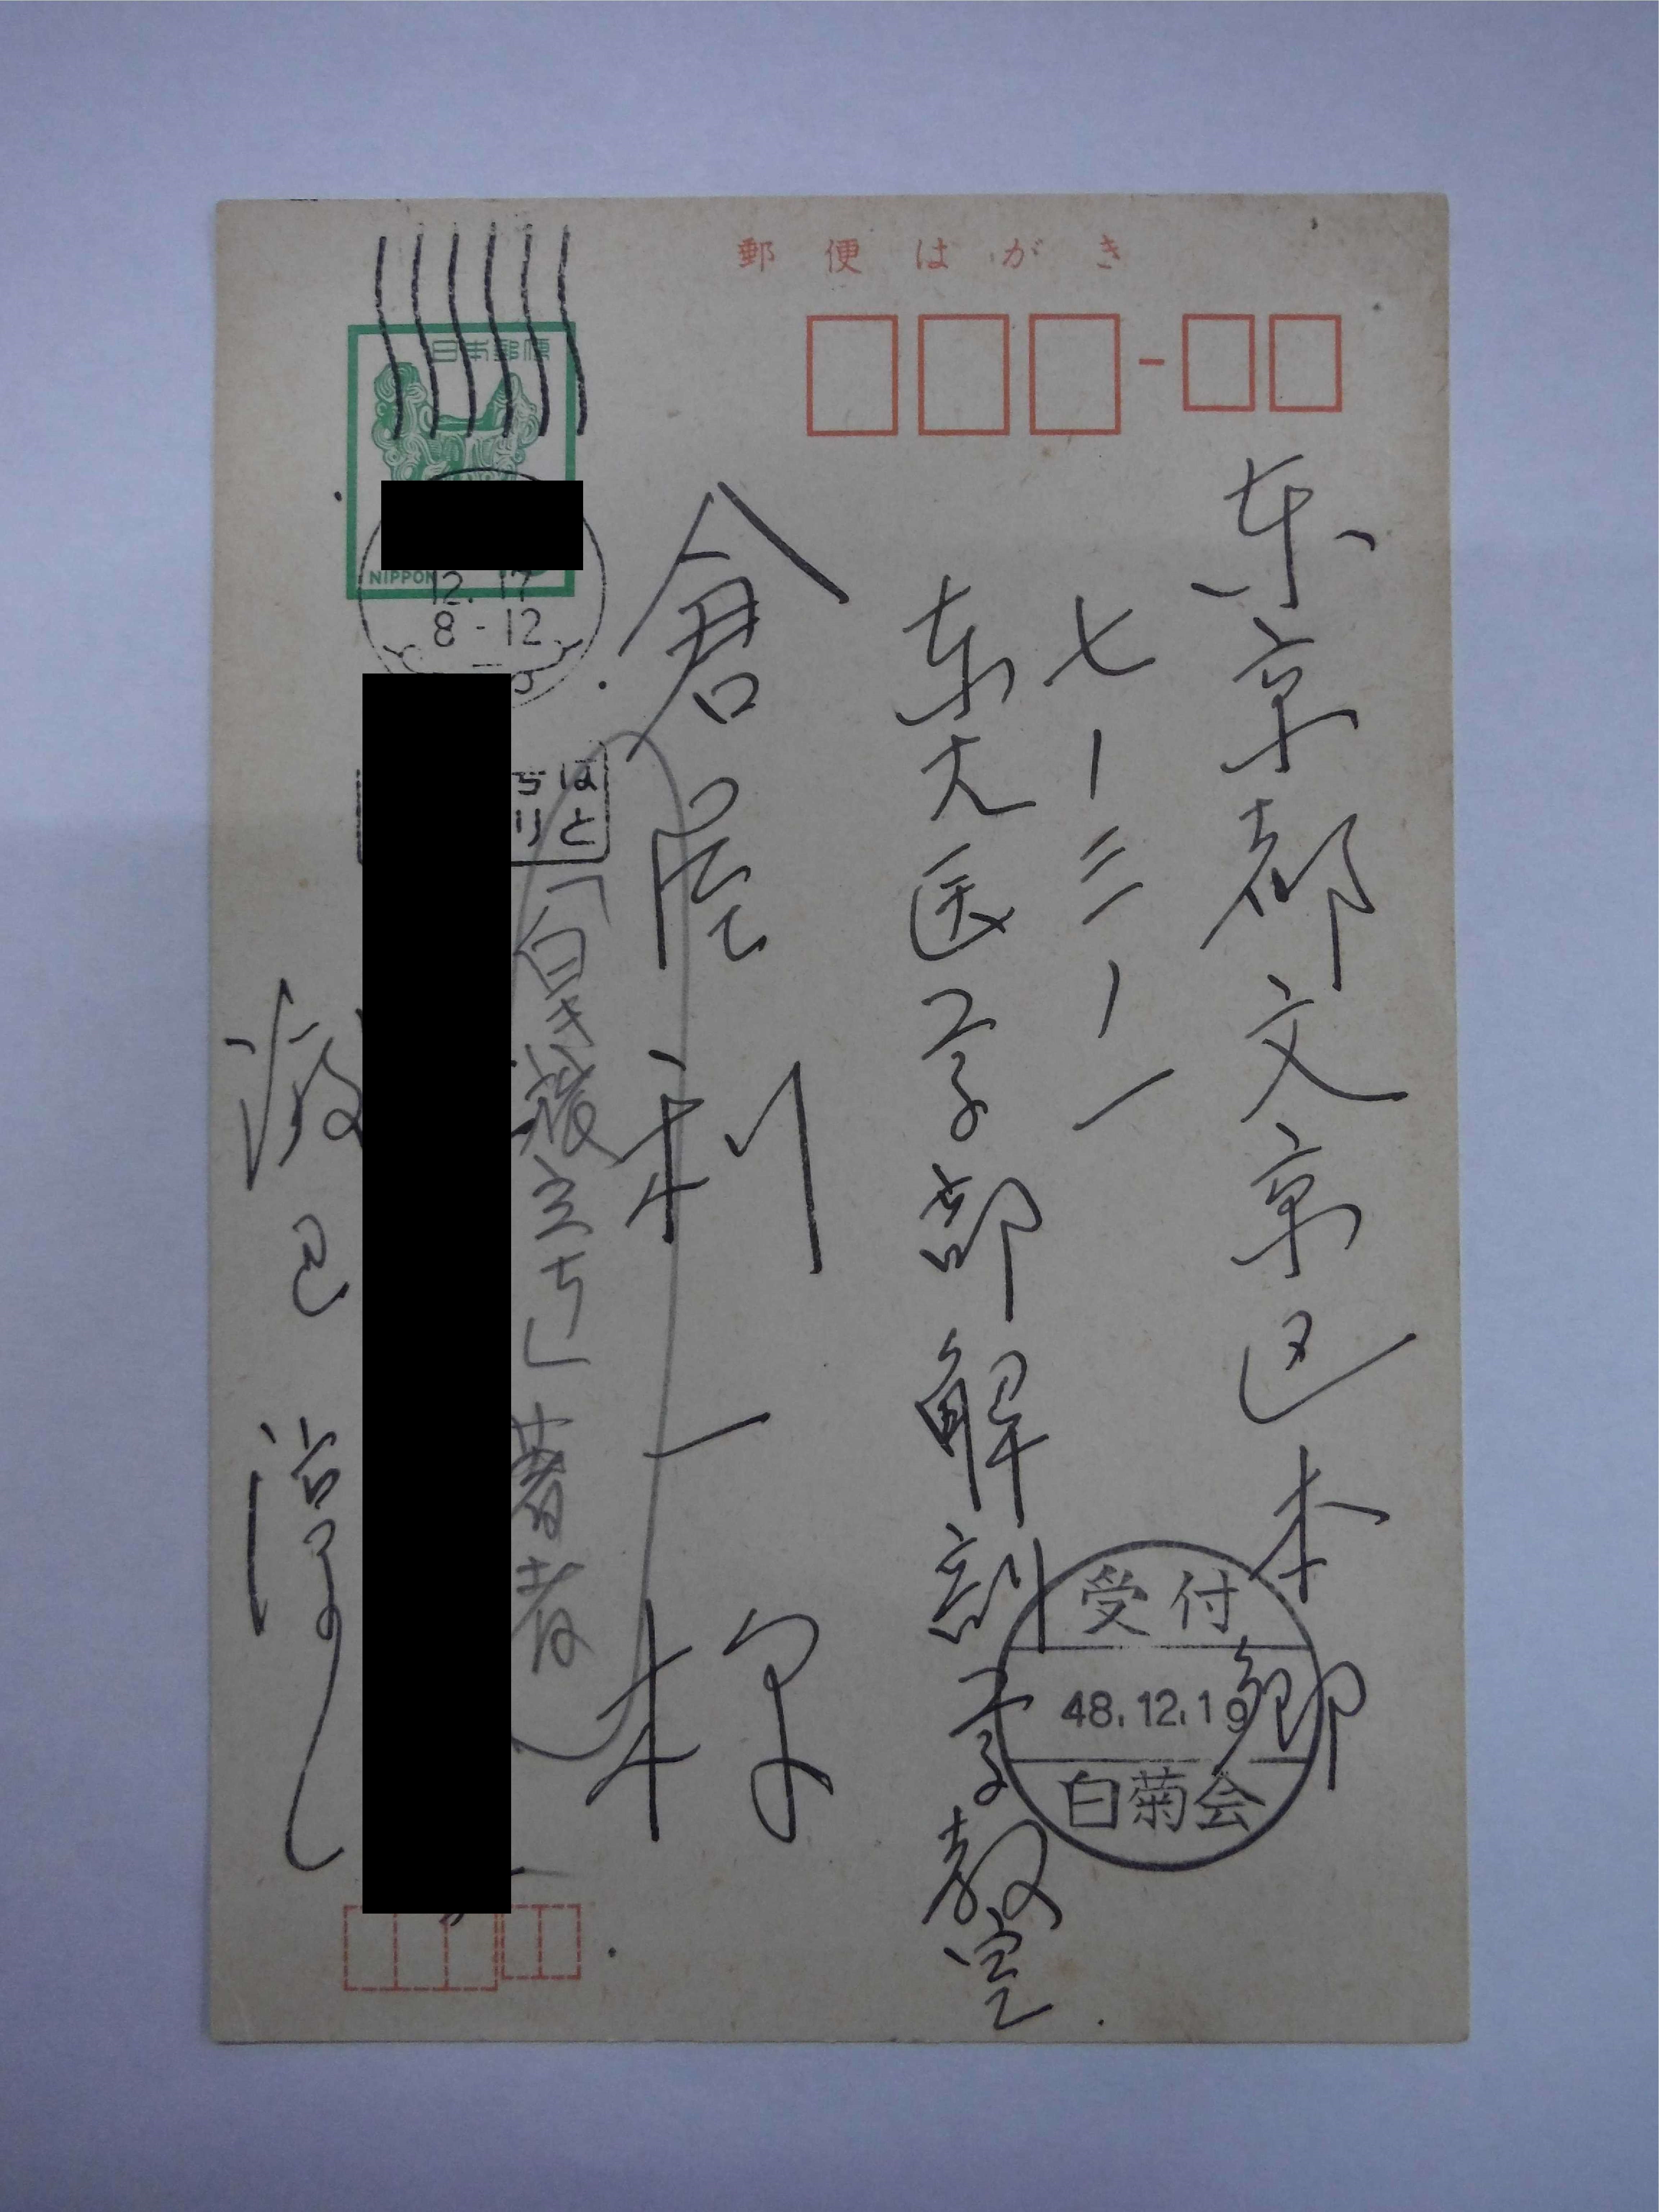 郵便はがき
日本郵便
NIPPON
12.17
8-12
東京都文京区本郷
七ー三ー一
東大医学部解剖学教室
倉屋利一様
「白き旅立ち」著者
渡辺淳一
受付
48.12.19
白菊会